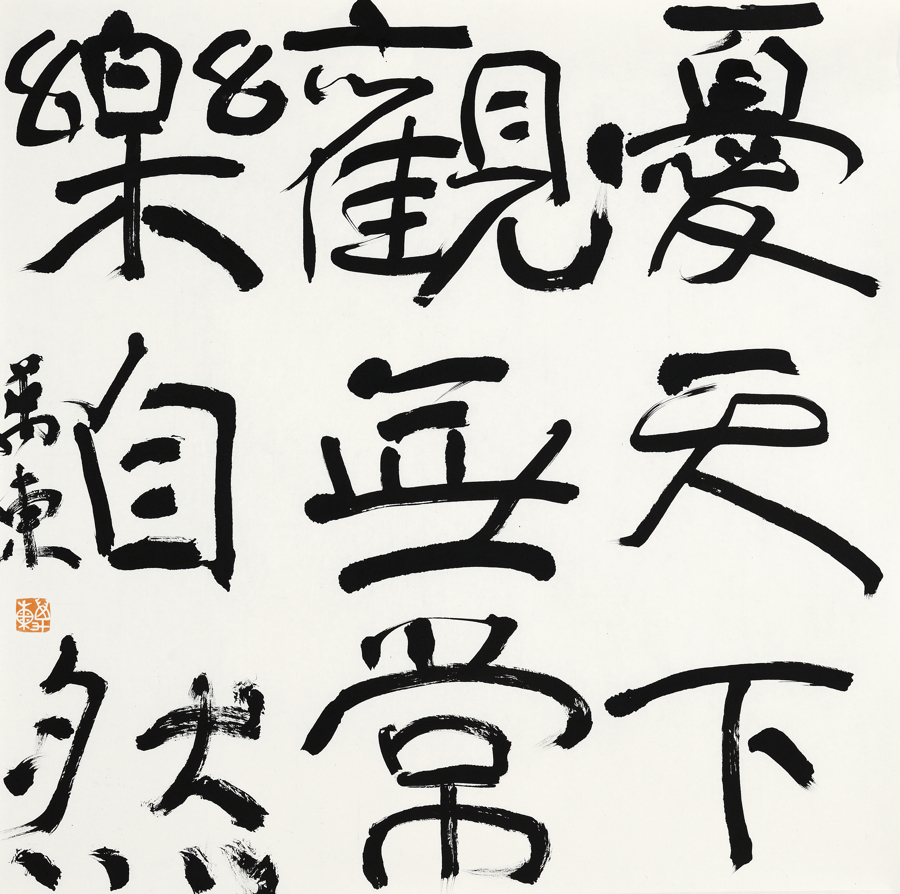 憂天下
觀無常
樂自然
萬東